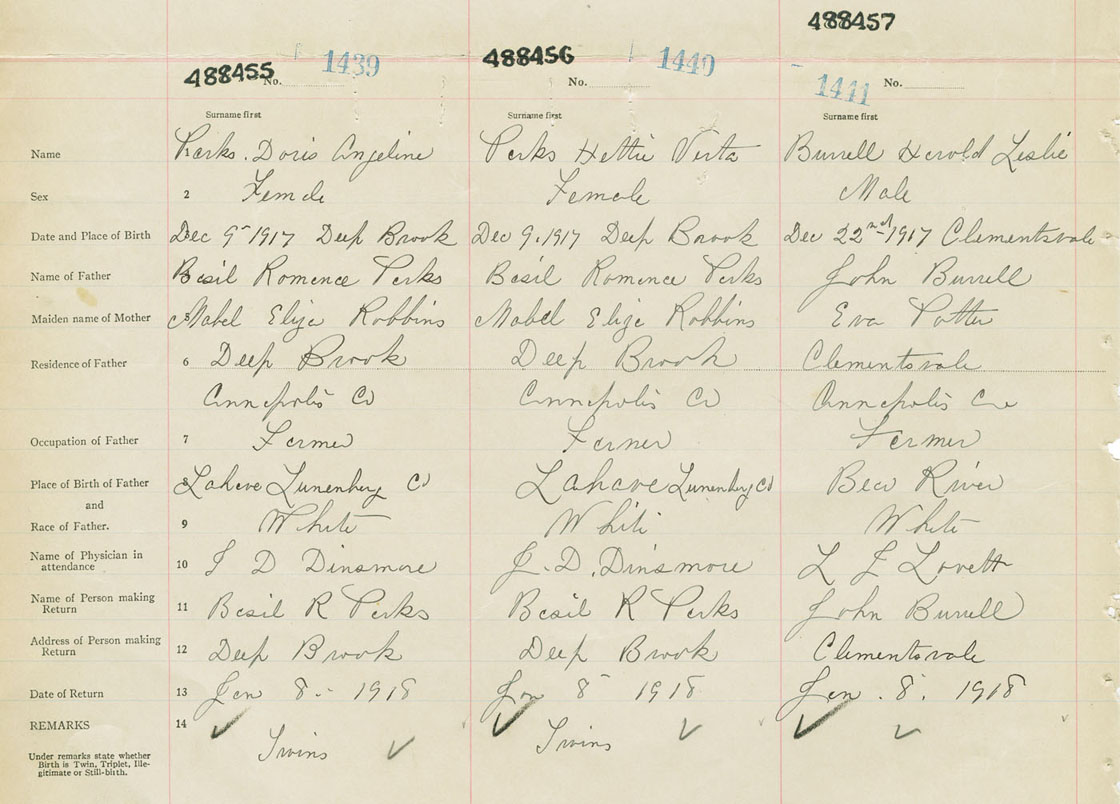 488457
488455 No. 1439 488456 No. 1440 1441 No.
Surname first Surname first Surname first
Name Parks. Doris Angeline Parks Hettie Burrell Harold Leslie
Sex 2 Female Female Male
Date and Place of Birth Dec 9 1917 Deep Brook Dec 9. 1917 Deep Brook Dec 22nd 1917 Clementsvale
Name of Father Basil Romence Parks Basil Romence Parks John Burrell
Maiden name of Mother 5 Mabel Eliza Robbins Mabel Eliza Robbins Eva Potter
Residence of Father 6 Deep Brook Deep Brook Clementsvale
Annapolis Co Annapolis Co Annapolis Co
Occupation of Father 7 Farmer Farmer Farmer
Place of Birth of Father 8 Lahave Lunenburg Co Lahave Lunenburg Co Bear River
and
Race of Father. 9 White White White
Name of Physician in
attendance 10 J D Dinsmore J. D. Dinsmore L J Lovett
Name of Person making
Return 11 Basil R Parks Basil R Parks John Burrell
Address of Person making
Return 12 Deep Brook Deep Brook Clementsvale
Date of Return 13 Jan 8 - 1918 Jan 8 1918 Jan. 8. 1918
REMARKS 14 ✓ ✓ ✓
Twins ✓ Twins ✓ ✓
Under remarks state whether
Birth is Twin, Triplet, Ille-
gitimate or Still-birth.